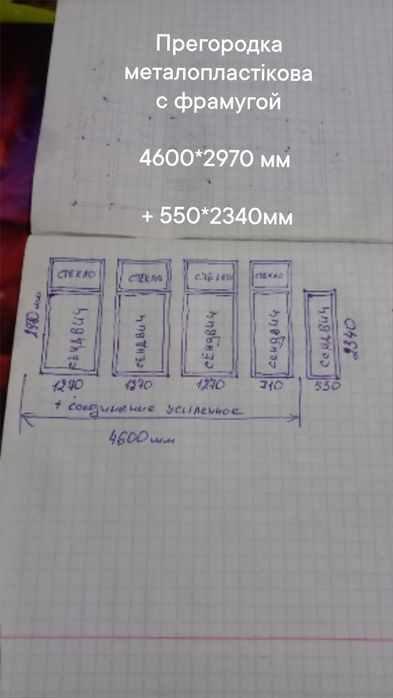 Прегородка
металопластікова
с фрамугой
4600*2970 мм
+ 550*2340мм
СТЕКЛО СТЕКЛО СТЕКЛО СТЕКЛО
СЕНДВИЧ СЕНДВИЧ СЕНДВИЧ СЕНДВИЧ СЕНДВИЧ
2970 мм
2340
1270 1270 1270 710 550
+ соединение усиленное
4600мм